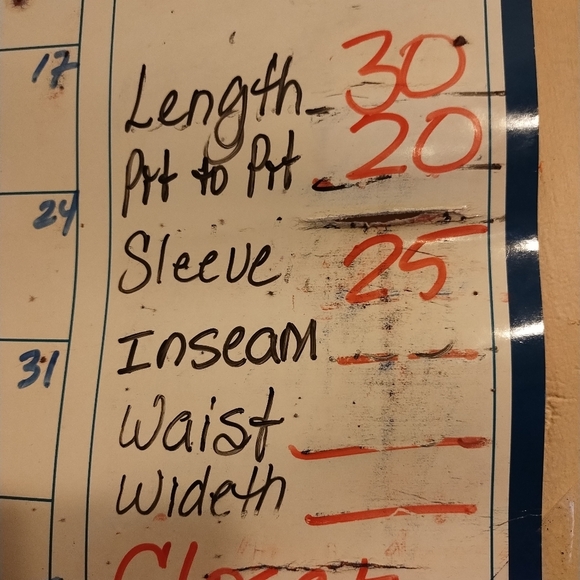 17
24
31
Length 30
Prt to Prt 20
Sleeve 25
Inseam
Waist
Wideth
Closet